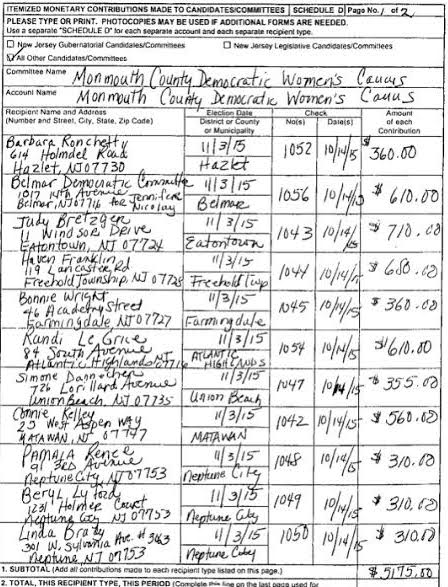 ITEMIZED MONETARY CONTRIBUTIONS MADE TO CANDIDATES/COMMITTEES SCHEDULE D Page No. 1 of 2
PLEASE TYPE OR PRINT. PHOTOCOPIES MAY BE USED IF ADDITIONAL FORMS ARE NEEDED.
Use a separate "SCHEDULE D" for each separate account and each separate recipient type.
New Jersey Gubernatorial Candidates/Committees New Jersey Legislative Candidates/Committees
All Other Candidates/Committees
Committee Name Monmouth County Democratic Women's Caucus
Account Name Monmouth County Democratic Women's Caucus
Recipient Name and Address
(Number and Street, City, State, Zip Code)
Election Date
District or County
or Municipality
Check
No(s) Date(s)
Amount
of each
Contribution
Barbara Ronchetty
614 Holmdel Road
Hazlet, NJ 07730
11/3/15
Hazlet
1052 10/14/15 $360.00
Belmar Democratic Committee
1017 Avenue
Belmar, NJ 07716 for Jennifer
Nicolay
11/3/15
Belmar
1056 10/14/15 $610.00
Judy Bretzger
11 Windsor Drive
Eatontown, NJ 07724
11/3/15
Eatontown
1043 10/14/15 $710.00
Haven Franklin
119 Lancaster Rd
Freehold Township, NJ 07728
11/3/15
Freehold Twp
1044 10/14/15 $
Bonnie Wright
46 Academy Street
Farmingdale NJ 07727
11/3/15
Farmingdale
1045 10/14/15 $360.00
Randi Le Grice
84 South Avenue
Atlantic Highlands NJ 07716
11/3/15
ATLANTIC
HIGHLANDS
1054 10/14/15 $610.00
Simone
726 Lorillard Avenue
Union Beach, NJ 07735
11/3/15
Union Beach
1047 10/14/15 $355.00
Connie Kelley
25 West Aspen Way
MATAWAN, NJ 07747
11/3/15
MATAWAN
1042 10/14/15 $560.00
PAMALA Rence
91 3RD Avenue
Neptune City, NJ 07753
11/3/15
Neptune City
1048 10/14/15 $310.00
Beryl Lyford
1231 Holmes Court
Neptune City NJ 07753
11/3/15
Neptune City
1049 10/14/15 $310.00
Linda Brady
301 W. Sylvania Ave. #
Neptune, NJ 07753
11/3/15
Neptune City
1050 10/14/15 $310.00
1. SUBTOTAL (Add all contributions made to each recipient type listed on this page.) $5175.00
2. TOTAL, THIS RECIPIENT TYPE, THIS PERIOD (Complete this line on the last page used for